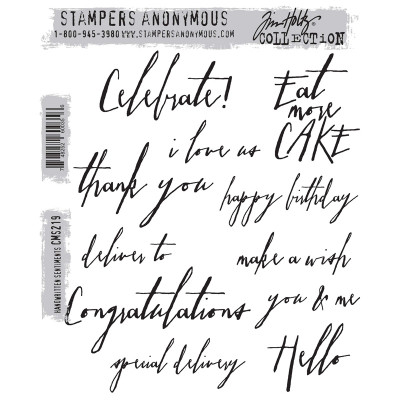 STAMPERS ANONYMOUS
1-800-945-3980 www.STAMPERSANONYMOUS.COM
Tim Holtz
COLLECTION
Celebrate!
Eat
more
CAKE
i love us
thank you
happy birthday
deliver to
make a wish
Congratulations
you & me
special delivery
Hello
HANDWRITTEN SENTIMENTS CMS219